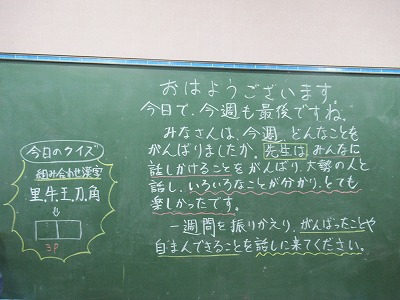 おはようございます。
今日で、今週も最後ですね。
みなさんは、今週、どんなことを
がんばりましたか。先生は、みんなに
話しかけることをがんばり、大勢の人と
話し、いろいろなことが分かり、とても
楽しかったです。
一週間を振りかえり、がんばったことや
自まんできることを話しに来てください。
今日のクイズ
組み合わせ漢字
里、牛、王、刀、角
3P